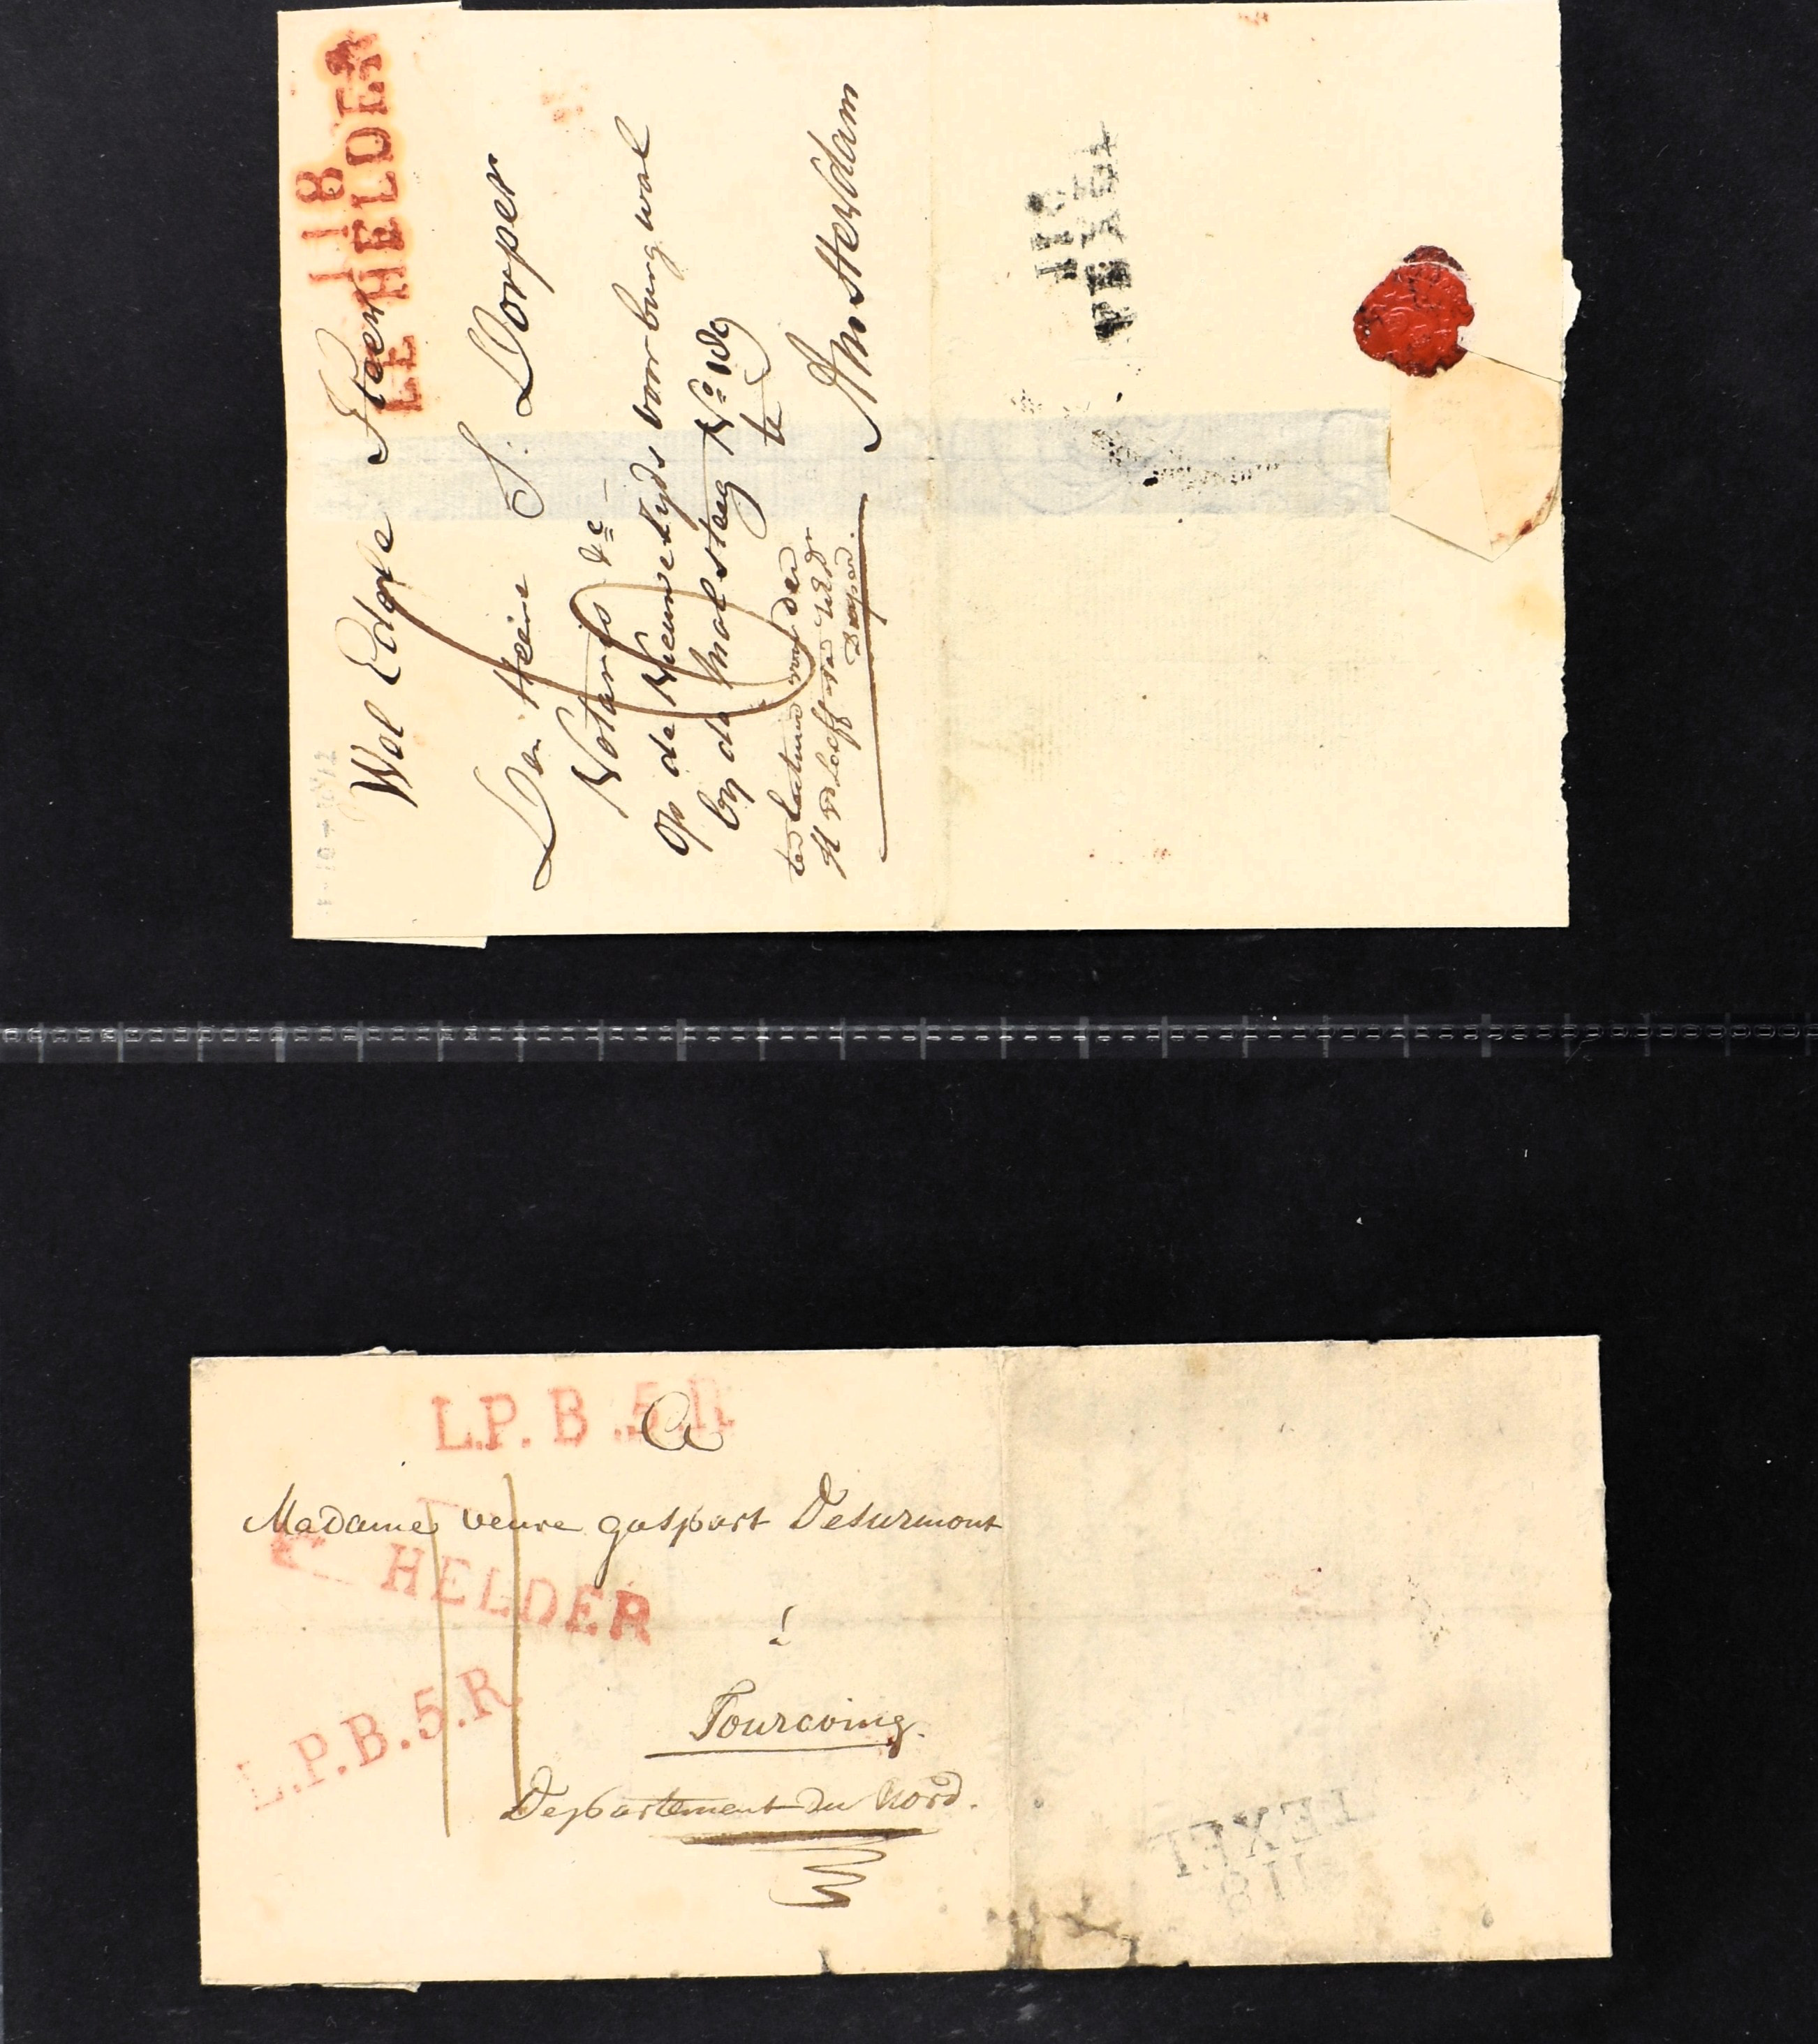 118
LE HELDER
Wel Edele Heer
Den Heere S. Dorper
Notaris &c
op de Nieuwe Zyds voorburgwal
by de Molsteeg No
te
Amsterdam
118
TEXEL
L.P.B.5.R
A
Madame veuve gaspart Desurmont
HELDER
à
L.P.B.5.R
Tourcoing.
Departement du Nord.
TEXEL
118